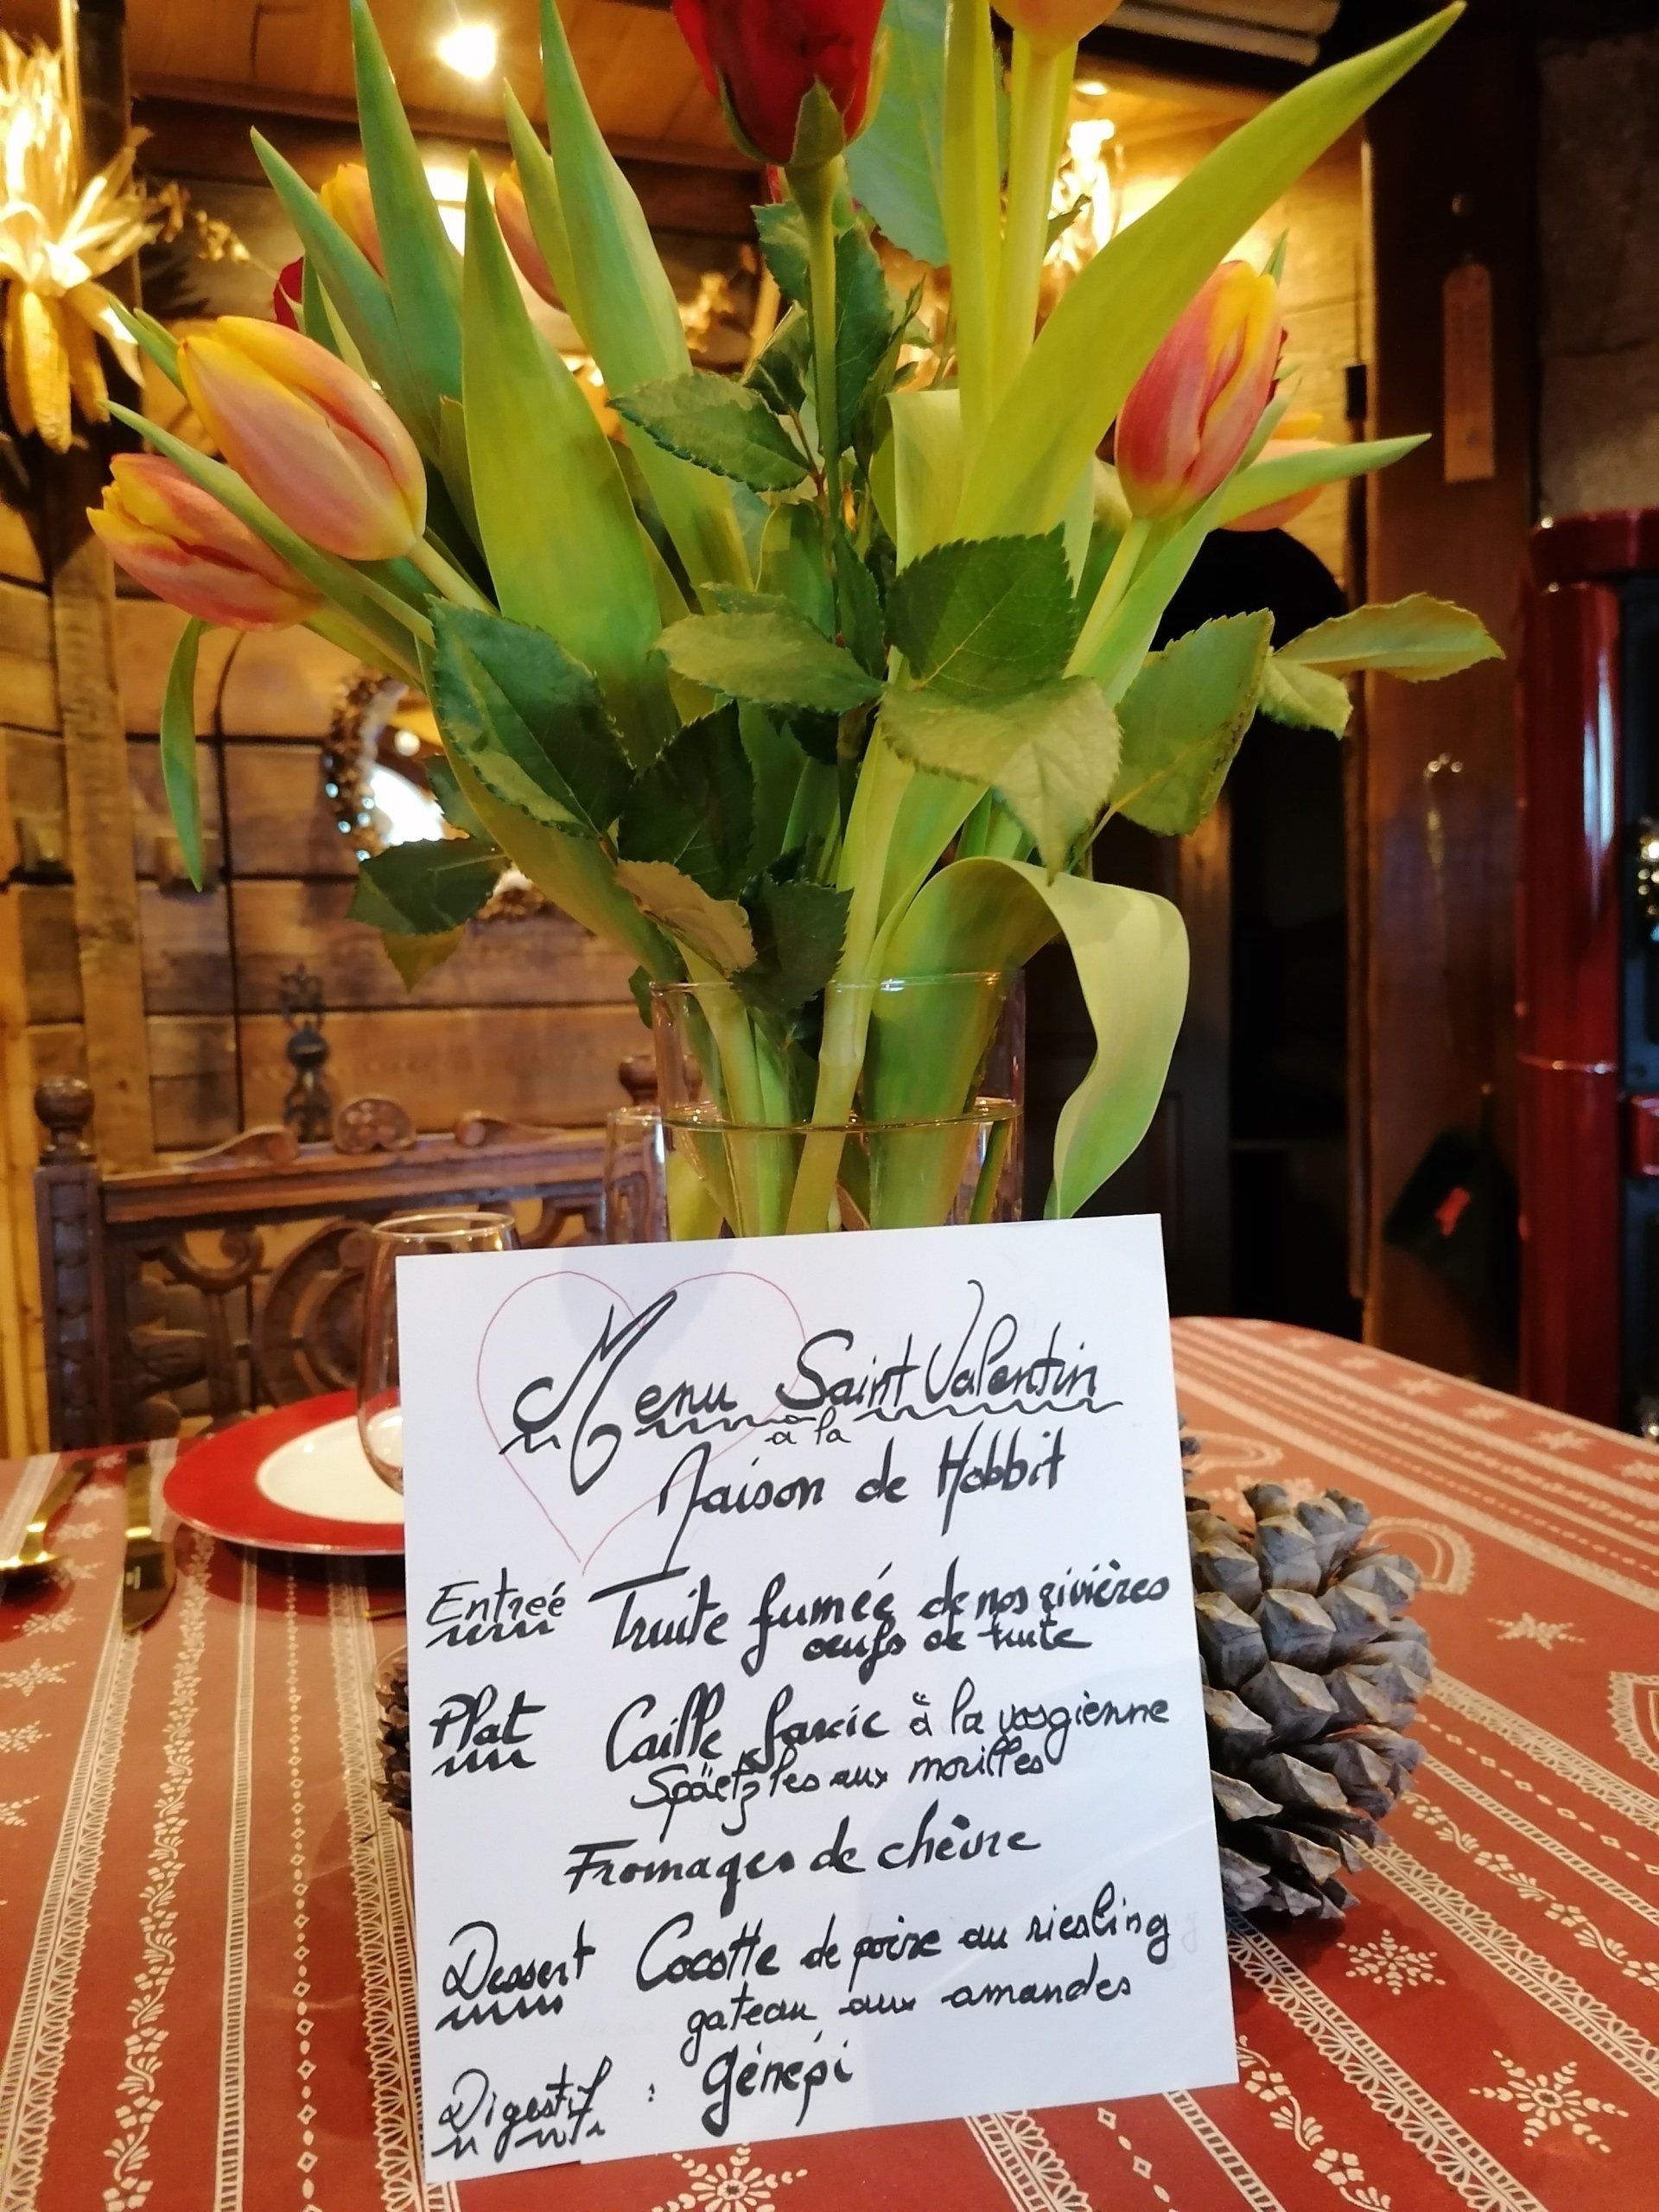 Menu Saint Valentin
à la
Maison de Hobbit
Entrée Truite fumée de nos rivières
oeufs de truite
Plat Caille farcie à la vosgienne
Späetzles aux morilles
Fromages de chèvre
Dessert Cocotte de poire au riesling
gateau aux amandes
Digestif : Génépi